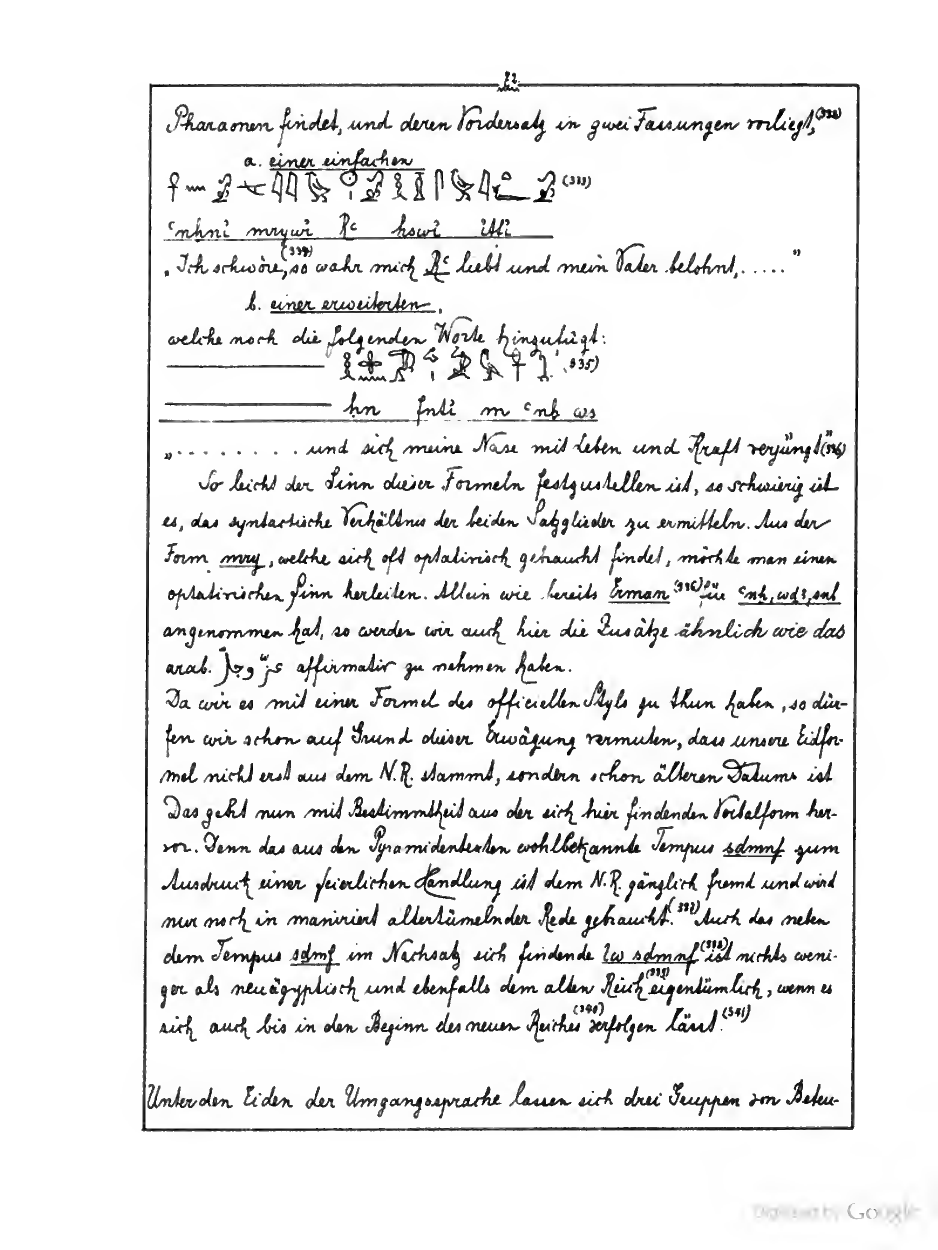 72
Pharaonen findet, und deren Vordersatz in zwei Fassungen vorliegt, (332)
a. einer einfachen
(333)
ꜥnḫni mrywi Rꜥ ḥswi itfi
(334)
„Ich schwöre, so wahr mich Rꜥ liebt und mein Vater belohnt, ....."
b. einer erweiterten,
welche noch die folgenden Worte hinzufügt:
(335)
ḥn fnti m ꜥnḫ ws
„ . . . . . . . . und sich meine Nase mit Leben und Kraft verjüngt" (336)
So leicht der Sinn dieser Formeln festzustellen ist, so schwierig ist
es, das syntactische Verhältnis der beiden Satzglieder zu ermitteln. Aus der
Form mry, welche sich oft optativisch gebraucht findet, möchte man einen
optativischen Sinn herleiten. Allein wie bereits Erman (336) für ꜥnḫ, wḏꜣ, snb
angenommen hat, so werden wir auch hier die Zusätze ähnlich wie das
arab. عزّ وجلّ affirmativ zu nehmen haben.
Da wir es mit einer Formel des officiellen Styls zu thun haben, so dür-
fen wir schon auf Grund dieser Erwägung vermuten, dass unsere Eidfor-
mel nicht erst aus dem N.R. stammt, sondern schon älteren Datums ist
Das geht nun mit Bestimmtheit aus der sich hier findenden Verbalform her-
vor. Denn das aus den Pyramidentexten wohlbekannte Tempus sdmnf zum
Ausdruck einer feierlichen Handlung ist dem N.R. gänzlich fremd und wird
nur noch in manirirt altertümelnder Rede gebraucht. (337) Auch das neben
dem Tempus sdmf im Nachsatz sich findende iw sdmnf (338) ist nichts weni-
ger als neuägyptisch und ebenfalls dem alten Reich (339) eigentümlich, wenn es
sich auch bis in den Beginn des neuen Reiches (340) verfolgen lässt. (341)
Unter den Eiden der Umgangssprache lassen sich drei Gruppen von Beteu-
Digitized by Google